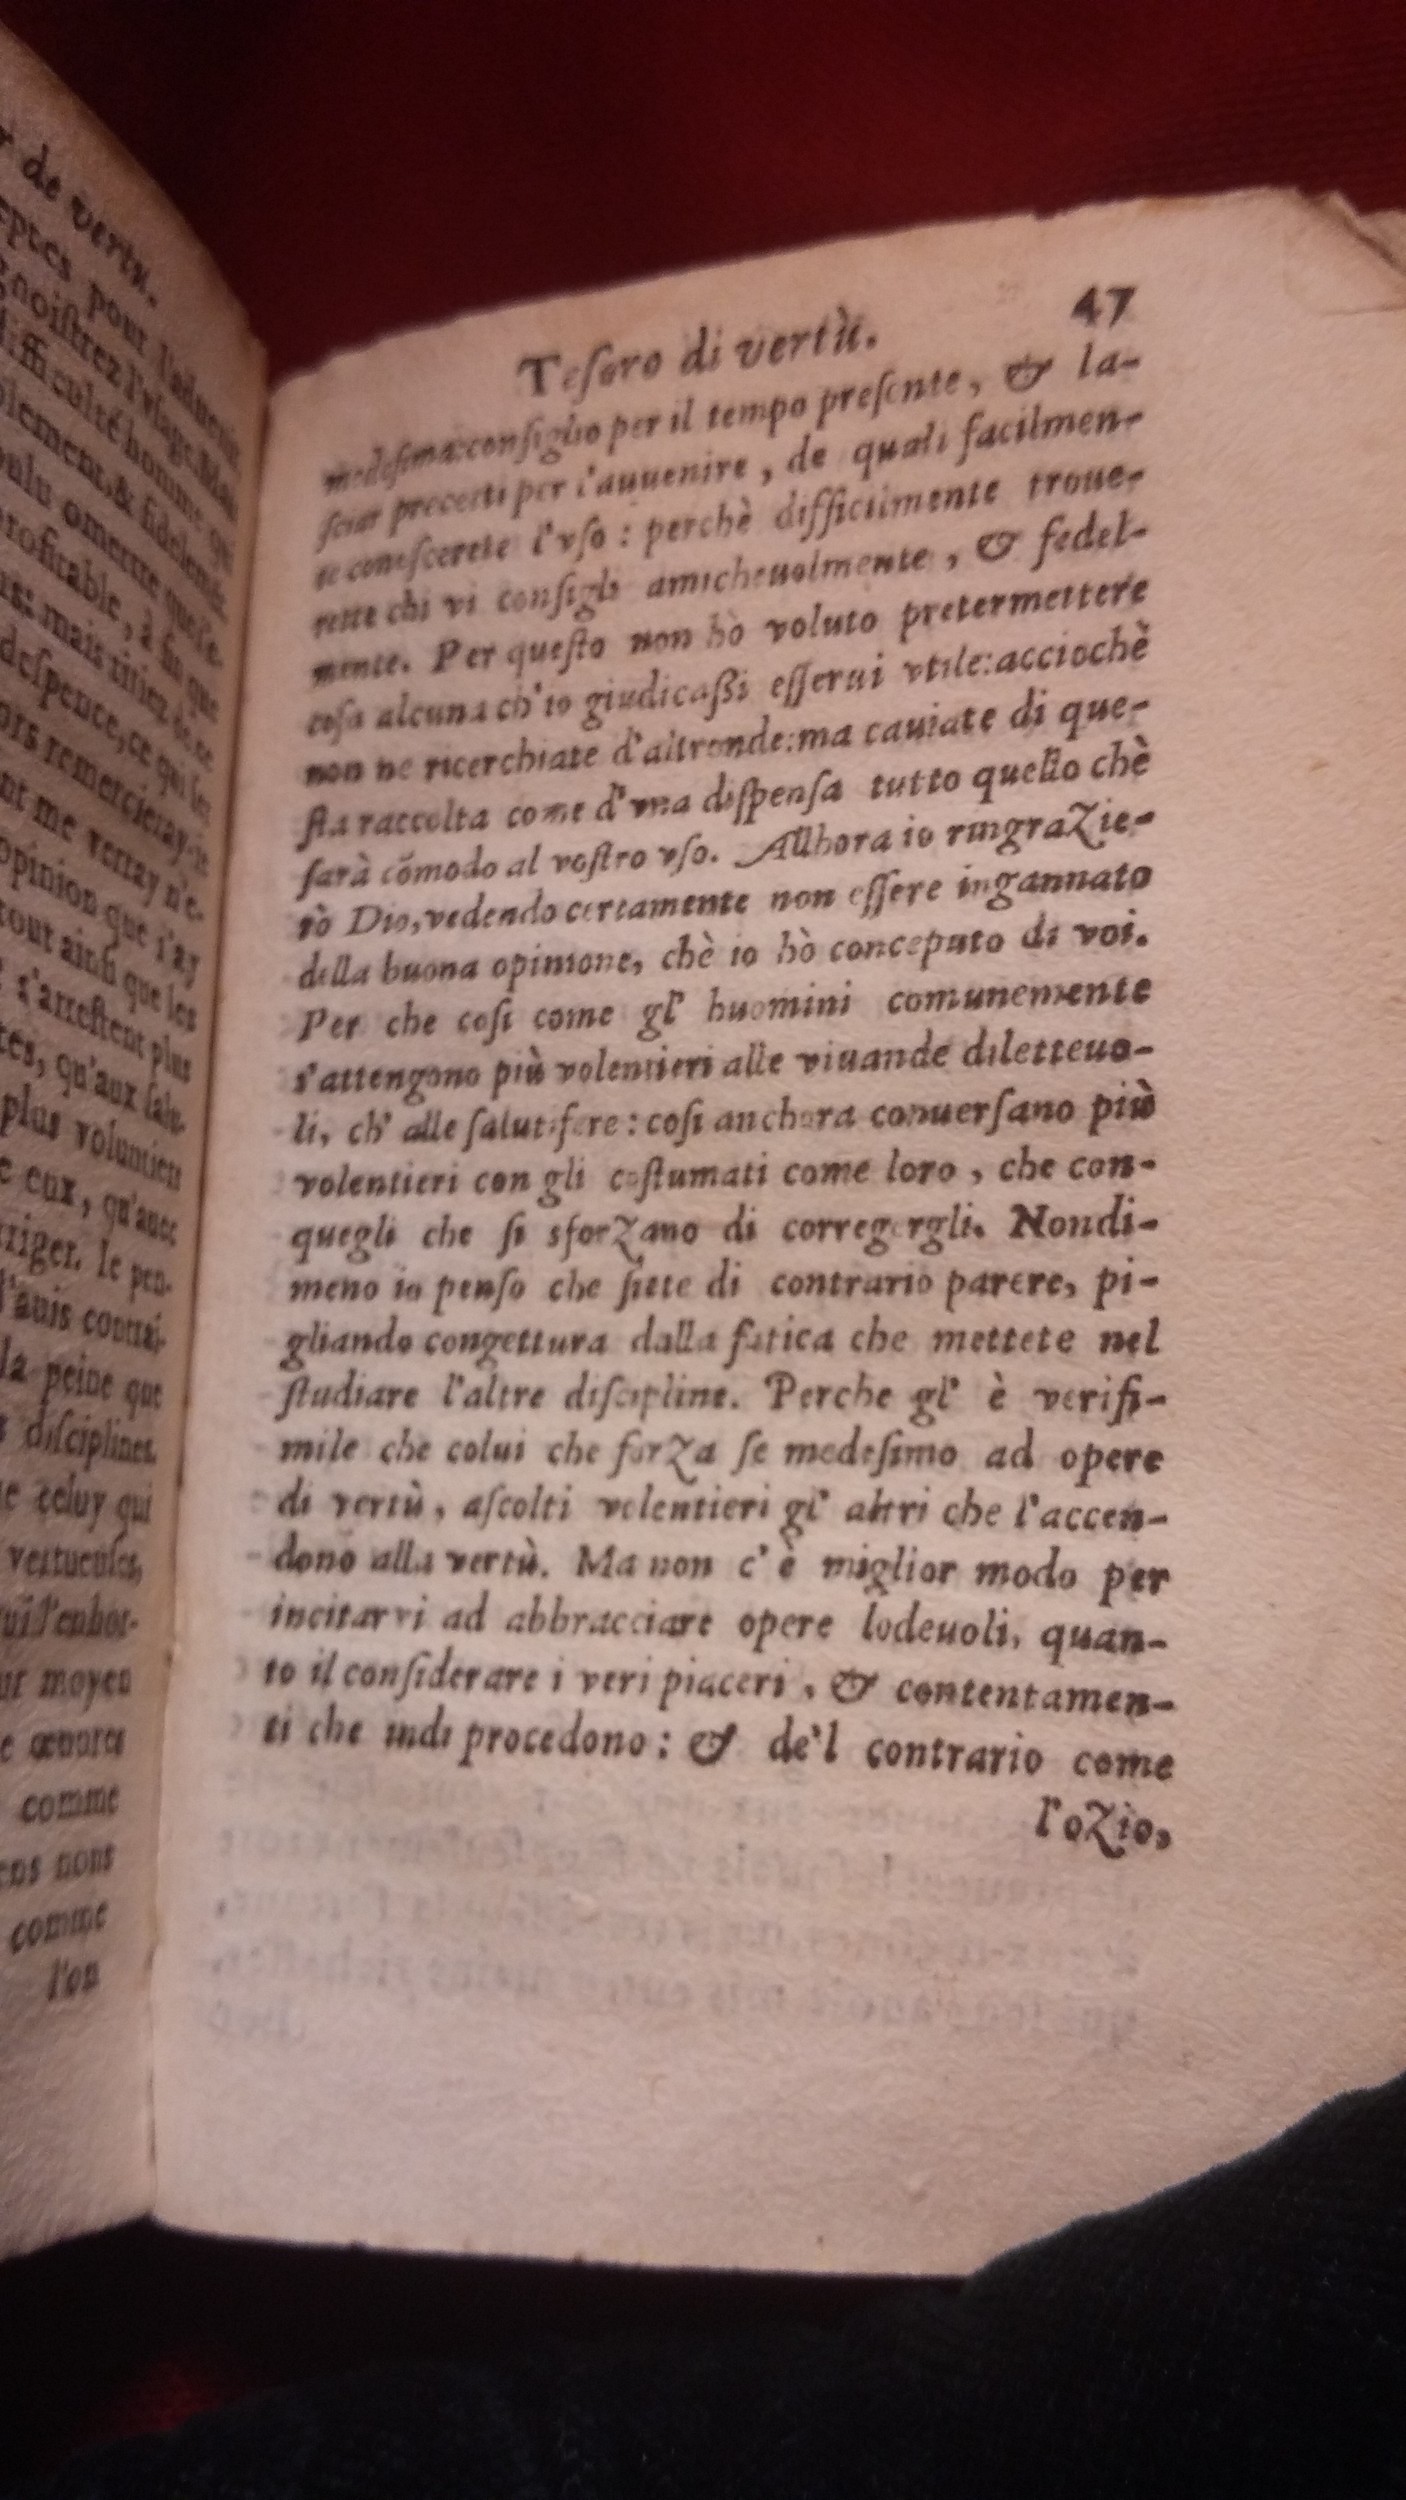 r de vertu.
eptes pour l'aduenir
gnoistrez l'vsage. Mais
difficulté homme qui
plement, & fidelemēt.
oulu omettre
profitable, à fin que
mais tiriez de ce
despence, ce qui
ors remercieray-ie
nt me verray n'e-
opinion que i'ay
tout ainsi que les
s'arrestent plus
tes, qu'aux salu-
plus voluntiers
c eux, qu'auec
rriger. Ie pen-
l'auis contrai-
la peine que
s disciplines.
e celuy qui
vertueuses,
ui l'enhor-
ur moyen
e œuures
comme
ens nous
comme
l'on
Tesoro di vertù. 47
medesima: consiglio per il tempo presente, & la-
sciar precetti per l'auuenire, de quali facilmen-
te conoscerete l'vso: perchè difficilmente troue-
rette chi vi consigli amicheuolmente, & fedel-
mente. Per questo non hò voluto pretermettere
cosa alcuna ch'io giudicaßi esserui vtile: acciochè
non ne ricerchiate d'altronde: ma cauiate di que-
sta raccolta come d'vna dispensa tutto quello chè
sarà cõmodo al vostro vso. Allhora io ringraZie-
rò Dio, vedendo certamente non essere ingannato
della buona opinione, chè io hò conceputo di voi.
Per che cosi come gl' huomini comunemente
s'attengono più volentieri alle viuande diletteuo-
li, ch' alle salutifere: cosi anchora conuersano più
volentieri con gli costumati come loro, che con-
quegli che si sforZano di corregergli. Nondi-
meno io penso che siete di contrario parere, pi-
gliando congettura dalla fatica che mettete nel
studiare l'altre discipline. Perche gl' è verisi-
mile che colui che forZa se medesimo ad opere
di vertù, ascolti volentieri gl' altri che l'accen-
dono alla vertù. Ma non c' è miglior modo per
incitarvi ad abbracciare opere lodeuoli, quan-
to il considerare i veri piaceri, & contentamen-
ti che indi procedono: & de'l contrario come
l'oZio,